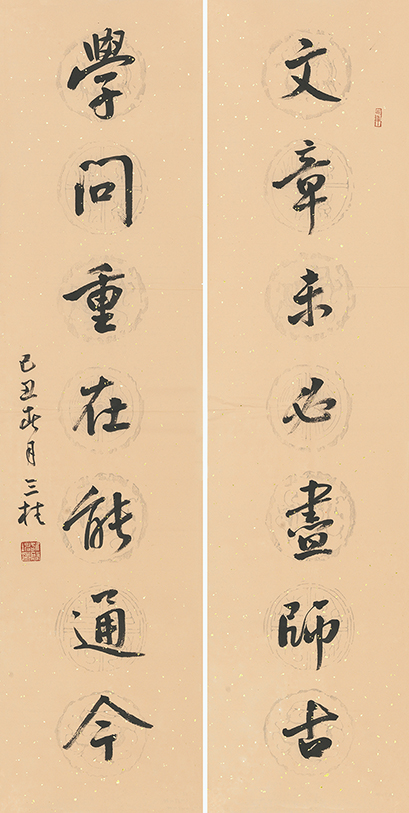 文章未必盡師古
學問重在能通今
己丑春月三枝